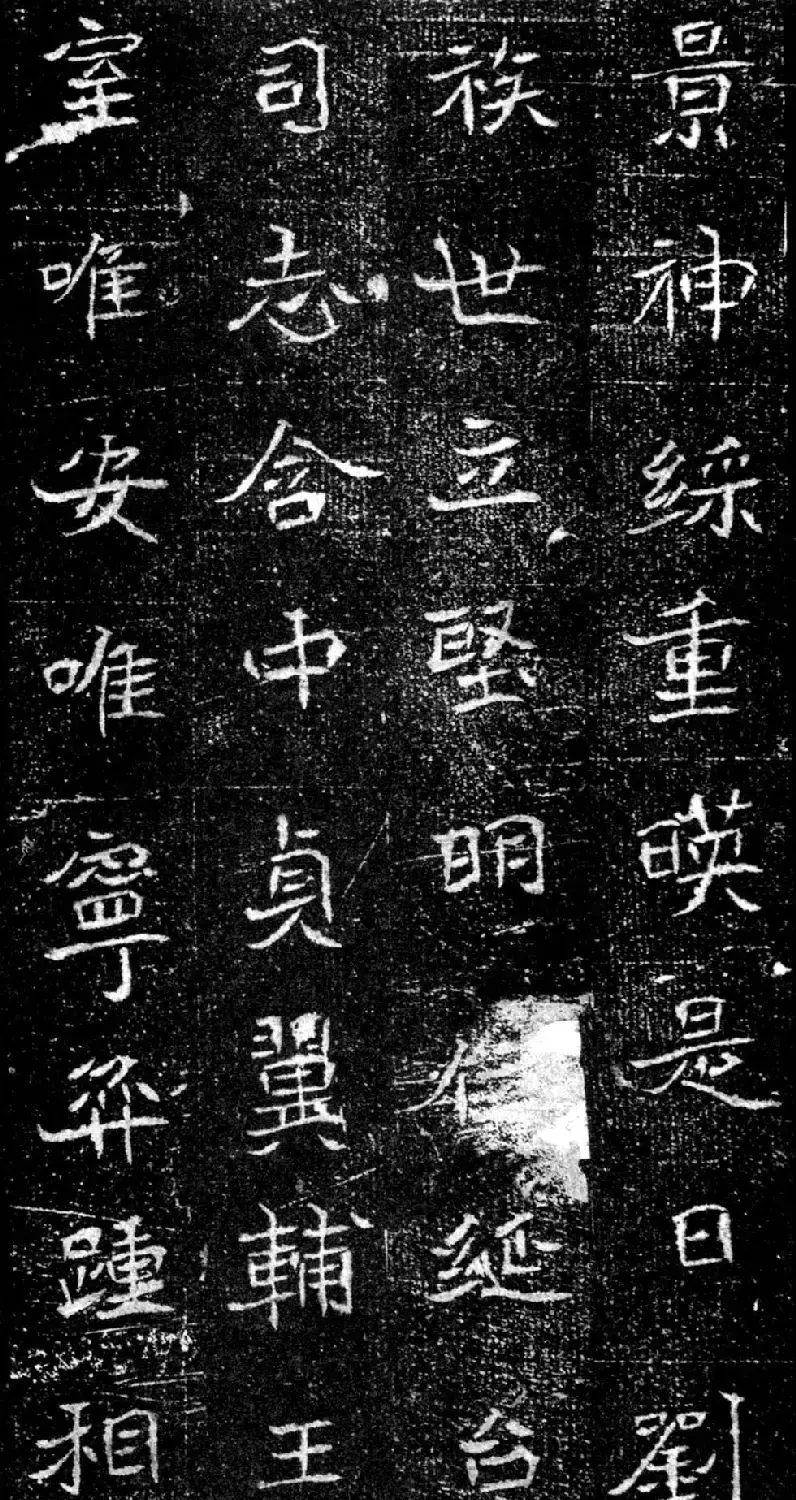 景神綵重暎是日劉
族世立堅明綖台
司志含中貞翼輔王
室唯安唯寧弈踵相